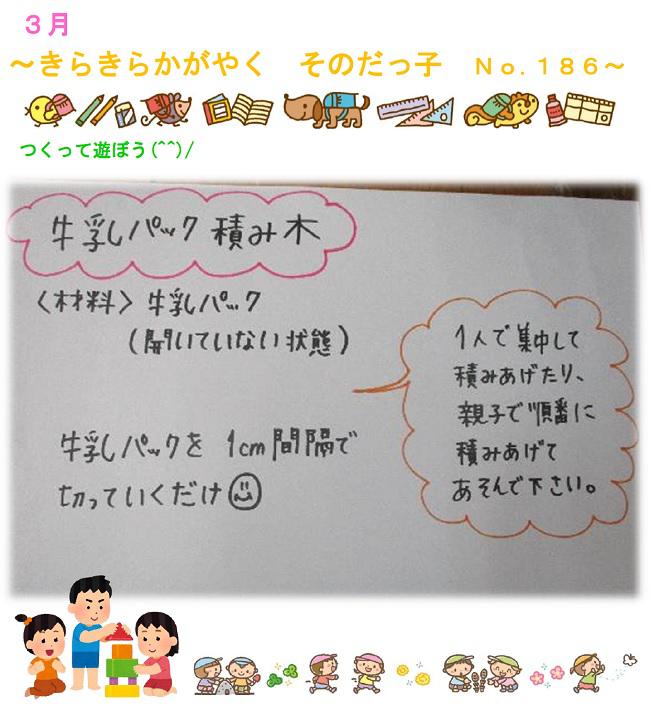 3月
～きらきらかがやく　そのだっ子　No.186～
つくって遊ぼう(^^)/
牛乳パック積み木
〈材料〉牛乳パック
(開いていない状態)
牛乳パックを1cm間隔で
切っていくだけ
1人で集中して
積みあげたり、
親子で順番に
積みあげて
あそんで下さい。